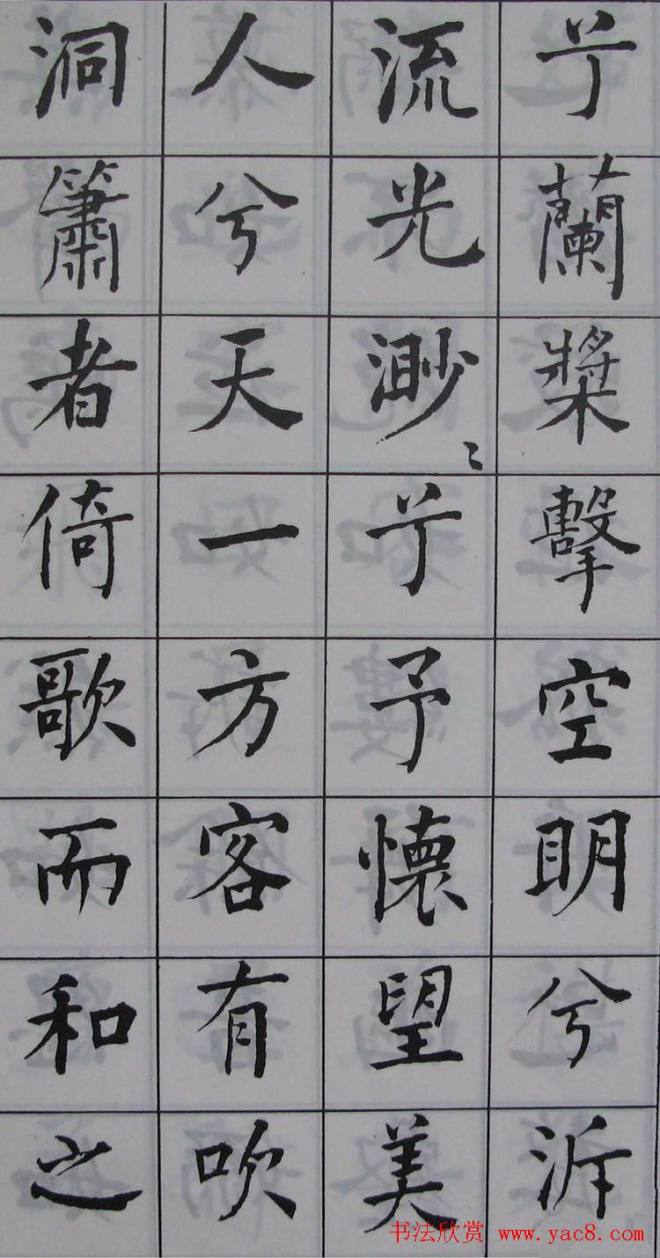 兮蘭槳擊空明兮泝
流光渺〻兮予懷望美
人兮天一方客有吹
洞簫者倚歌而和之
书法欣赏 www.yac8.com